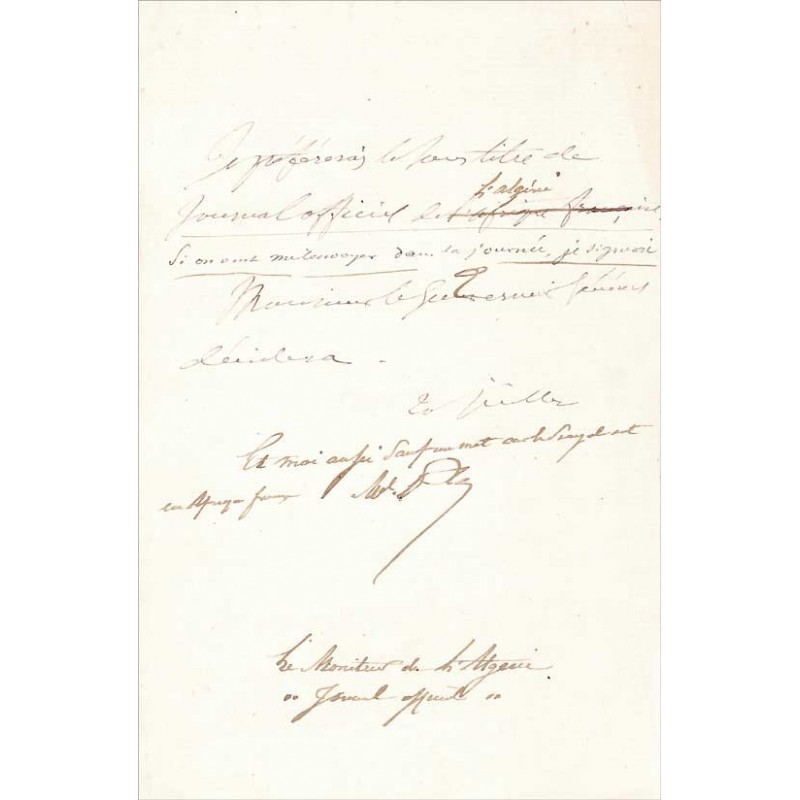 Je préférerais le sous titre de
l'algérie
Journal officiel de l'afrique française,
Si on veut me l'envoyer dans la journée, je signerai
Monsieur le Gouverneur Général
décidera.
20 juillet
Et moi aussi sauf un mot car le Sénégal est
en Afrique franç
Le Moniteur de l'Algérie
" Journal officiel "